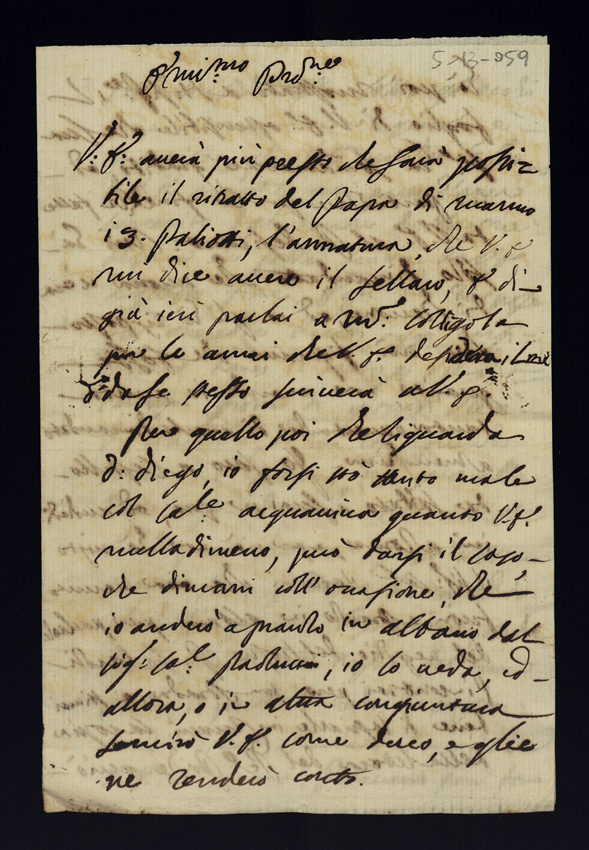 5213-059
V: E: averà più presto che sarà possi=
bile il ritratto del Papa di marmo
i 3. Paliotti, l'armatura, che V. E
mi dice avere il sellaro, e di
già ieri parlai a Mr. Colligola
per le armi che V. E. desidera, il
presto scriverà a V. E.
Per quello poi che riguarda
D: Diego, io forsi stò tanto male
col Cale acquaviva quanto V. E.
nulladimeno, può darsi il caso,
che dimani coll' occasione, che
io anderò a pranzo in albano dal
Sigr: Cal: Paolucci, io lo veda, ed
allora, o in altra congiuntura
servirò V. E. come devo, e glie
ne renderò conto.